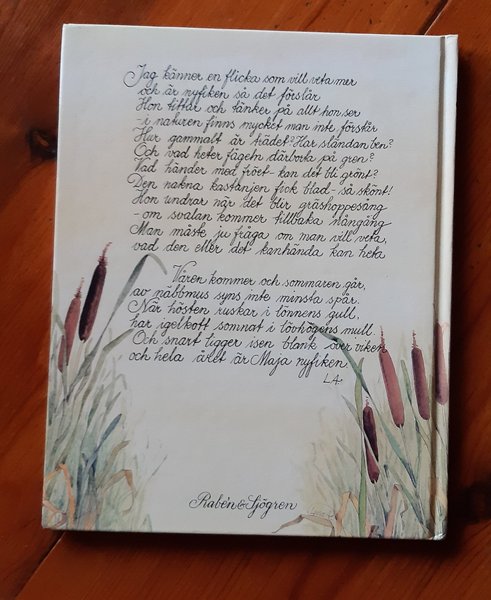 Jag känner en flicka som vill veta mer
och är nyfiken så det förslår
Hon tittar och tänker på allt hon ser
- i naturen finns mycket man inte förstår
Hur gammalt är trädet? Har sländan ben?
Och vad heter fågeln därborta på gren?
Vad händer med fröet - kan det bli grönt?
Den nakna kastanjen fick blad - så skönt!
Hon undrar när det blir gräshoppesång
- om svalan kommer tillbaka nångång
Man måste ju fråga om man vill veta,
vad den eller det kanhända kan heta
Våren kommer och sommaren går,
av näbbmus syns inte minsta spår.
När hösten ruskar i lönnens gull,
har igelkott somnat i lövhögens mull.
Och snart ligger isen blank över viken
och hela året är Maja nyfiken.
L.A.
Rabén & Sjögren